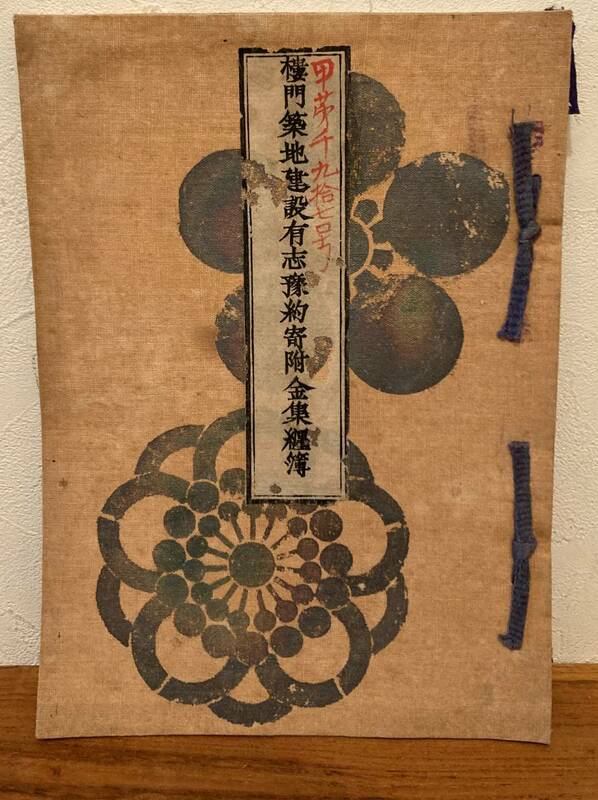 甲第千九拾七号
樓門築地建設有志豫約寄附金集纒簿